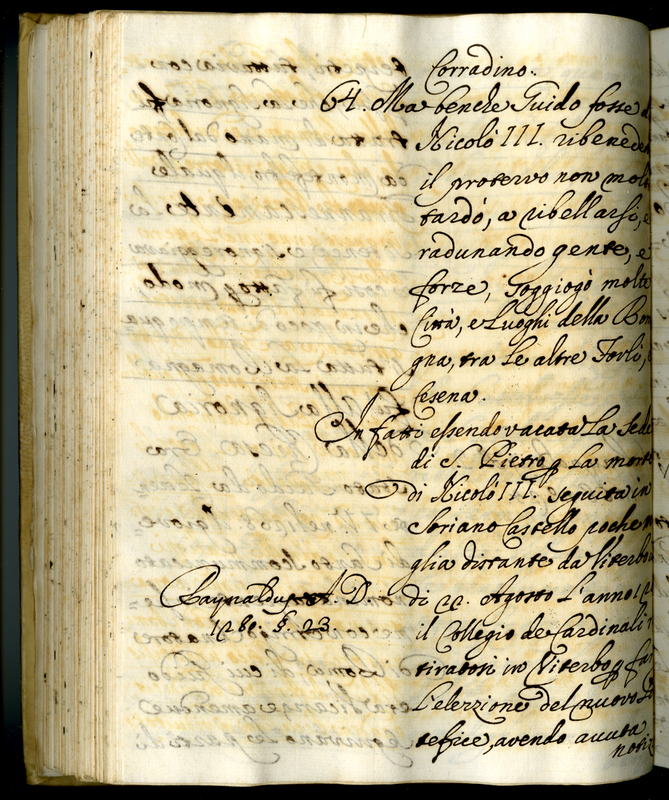 Corradino.
64. Ma benche Guido fosse d
Nicolò III. ribenede
il protervo non molt
tardò, a ribellarsi, e
radunando gente, e
forze, soggiogò molte
Città, e Luoghi della Rom
gna, tra le altre Forlì,
Cesena.
In fatti essendo vacata La Sede
di S. Pietro p La morte
di Nicolò III. seguita in
Soriano Castello poche m
glia distante da Viterbo
Raynaldus A. D. di 22. Agosto L'anno 12
1280. §. 23 il Collegio de Cardinali r
tiratosi in Viterbo p far
L'elezzione del nuovo Po
tefice, avendo avuta
notiz